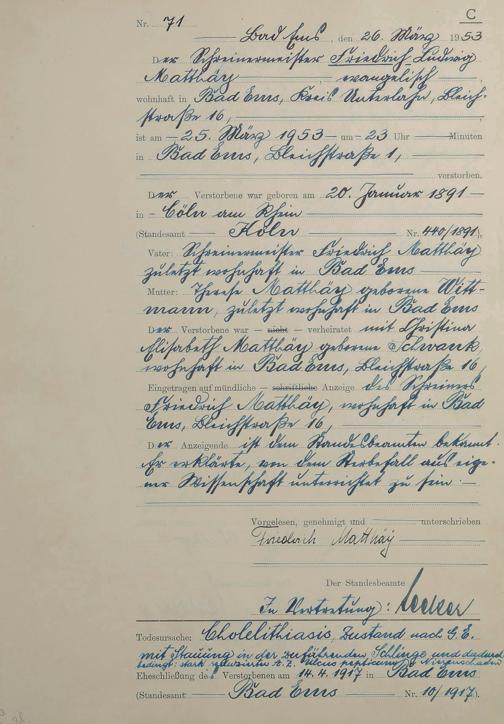 C
Nr. 71
Bad Ems, den 26. März 1953
Der Schreinermeister Friedrich Ludwig
Matthäy evangelisch
wohnhaft in Bad Ems, Kreis Unterlahn, Bleich-
straße 16,
ist am 25. März 1953 um 23 Uhr Minuten
in Bad Ems, Bleichstraße 1,
verstorben.
Der Verstorbene war geboren am 20. Januar 1891
in Cöln am Rhein
(Standesamt Köln Nr. 440/1891).
Vater: Schreinermeister Friedrich Matthäy
zuletzt wohnhaft in Bad Ems
Mutter: Therese Matthäy geborene Witt-
mann, zuletzt wohnhaft in Bad Ems
Der Verstorbene war – nicht – verheiratet mit Christina
Elisabeth Matthäy geborene Schwank
wohnhaft in Bad Ems, Bleichstraße 16
Eingetragen auf mündliche – schriftliche Anzeige des Schreiners
Friedrich Matthäy, wohnhaft in Bad
Ems, Bleichstraße 16
Der Anzeigende ist dem Standesbeamten bekannt.
Er erklärte, von dem Sterbefall aus eige-
ner Wissenschaft unterrichtet zu sein.
Vorgelesen, genehmigt und unterschrieben
Friedrich Matthäy
Der Standesbeamte
In Vertretung:
Todesursache: Cholelithiasis, Zustand nach G.E.
mit Stauung in der zuführenden Schlinge und dadurch
bedingt: stark A.Z. Ulcus pepticum
Eheschließung des Verstorbenen am 14.4.1917 in Bad Ems
(Standesamt Bad Ems Nr. 10/1917).